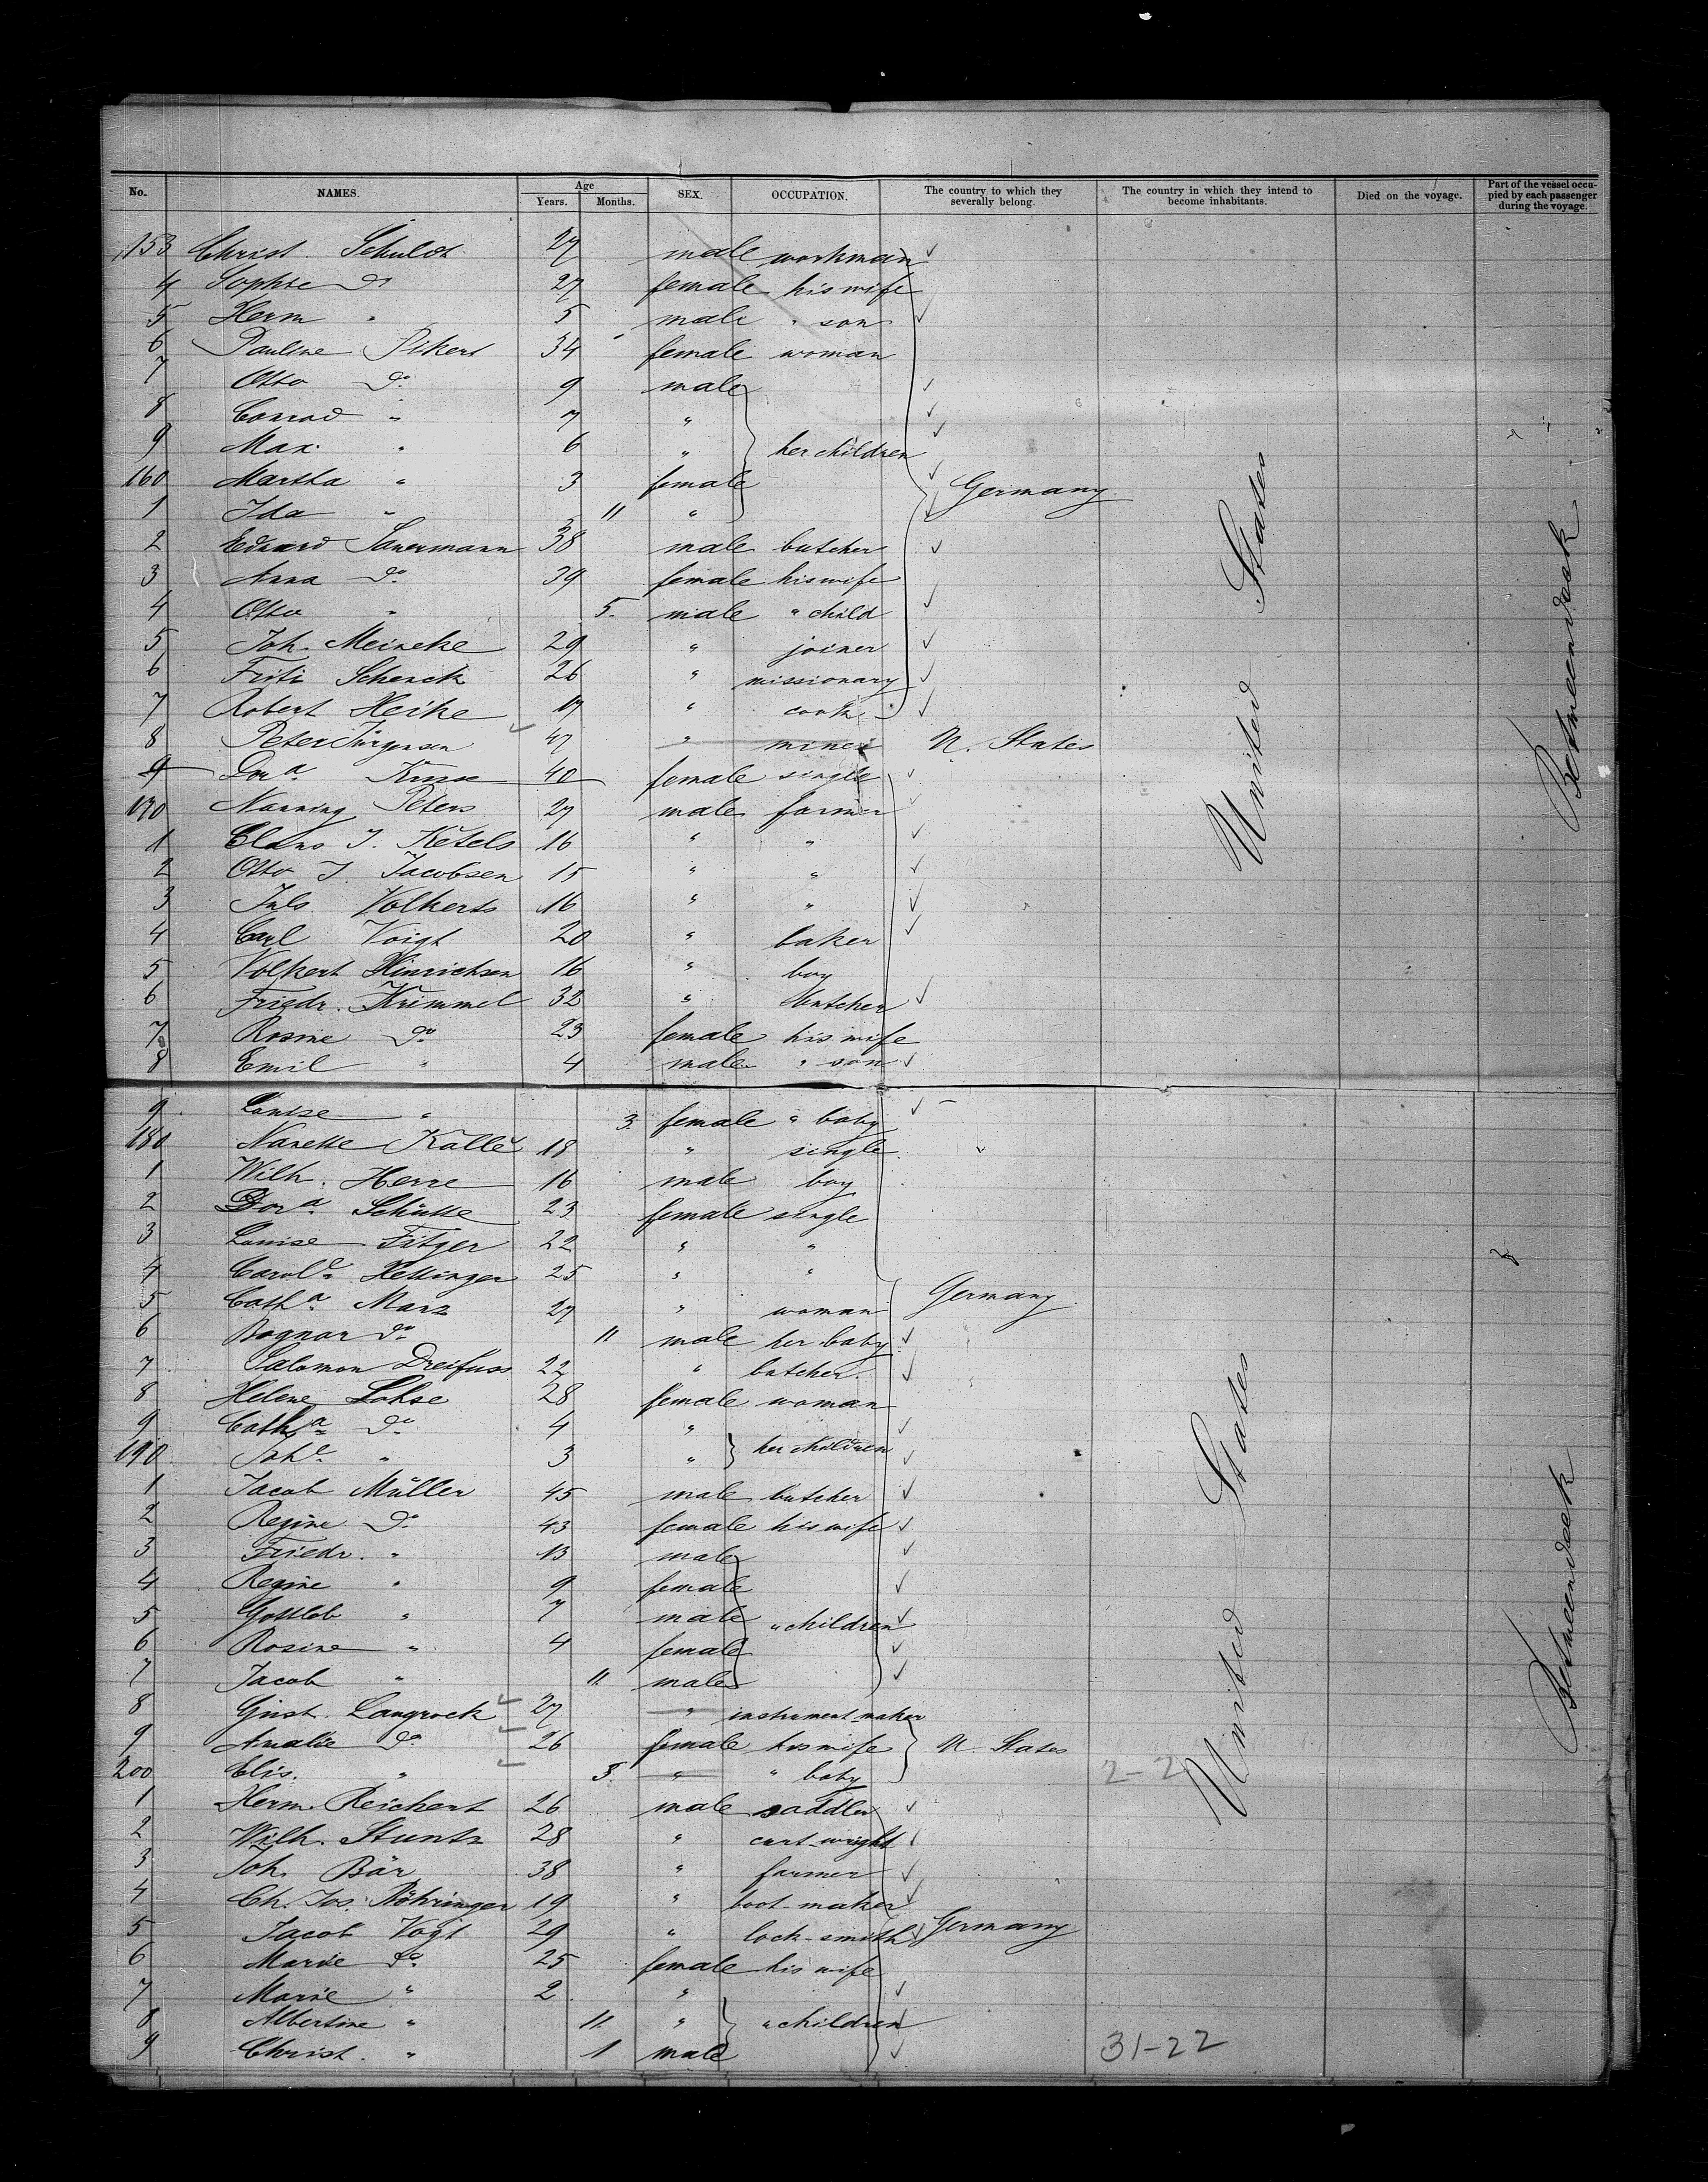 No. NAMES. Age Years. Months. SEX. OCCUPATION. The country to which they severally belong. The country in which they intend to become inhabitants. Died on the voyage. Part of the vessel occupied by each passenger during the voyage.
153 Christ. Schuldt 27 male workman
4 Sophie do 27 female his wife
5 Herm " 5 male " son
6 Pauline Pikert 34 female woman
7 Otto do 9 male
8 Conrad " 7 "
9 Max " 6 " her children
160 Martha " 3 female Germany
1 Ida " 11 "
2 Eduard Sauermann 38 male butcher
3 Anna do 39 female his wife
4 Otto " 5. male " child
5 Joh. Meineke 29 " joiner
6 Fritz Schenck 26 " missionary
7 Robert Heike 17 " cook
8 Peter Jürgensen 47 " miner U. States
9 Dora Kruse 40 female single
170 Nanning Peters 27 male farmer
1 Claus J. Ketels 16 " "
2 Otto J. Jacobsen 15 " "
3 Juls Volkerts 16 " "
4 Carl Voigt 20 " baker
5 Volkert Hinrichsen 16 " boy
6 Friedr. Krimmel 32 " butcher
7 Rosine do 23 female his wife
8 Emil " 4 male " son
United States
Betweendeck
9 Louise " 3. female " baby
180 Nanette Kallé 18 " single
1 Wilh. Herre 16 male boy
2 Dora Schütte 23 female single
3 Louise Fitger 22 " "
4 Carole Hettinger 25 " "
5 Catha Marz 27 " woman Germany
6 Bognar do 11 male her baby
7 Salomon Dreifuss 22 " butcher
8 Helene Lohse 28 female woman
9 Catha do 4 "
190 Johe " 3 " her children
1 Jacob Müller 45 male butcher
2 Regine do 43 female his wife
3 Friedr. " 13 male
4 Regine " 9 female
5 Gottlob " 7 male " children
6 Rosine " 4 female
7 Jacob " 11 male
8 Gust. Langrock 27 " instrument-maker
9 Amalie do 26 female his wife U. States
200 Elis. " 3. " " baby 2-2
1 Herm. Reichert 26 male saddler
2 Wilh. Stuntz 28 " cart-wright
3 Joh. Bär 38 " farmer
4 Ch. Jos. Röhringer 19 " boot-maker
5 Jacob Vogt 29 " lock-smith Germany
6 Marie do 25 female his wife
7 Marie " 2 "
8 Albertine " 11 " " children
9 Christ. " 1 male 31-22
United States
Betweendeck